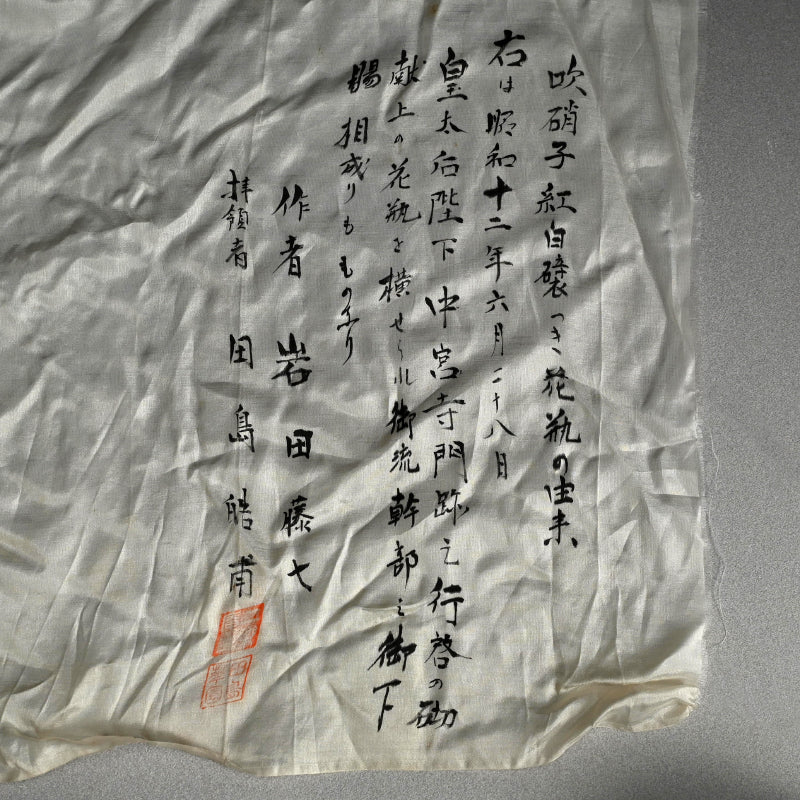 吹硝子紅白礞つき花瓶の由来
右は昭和十二年六月二十八日
皇太后陛下中宮寺門跡え行啓の砌
献上の花瓶を横せられ御流幹部え御下
賜相成りもものなり
作者 岩田藤七
拝領者 田島皓甫